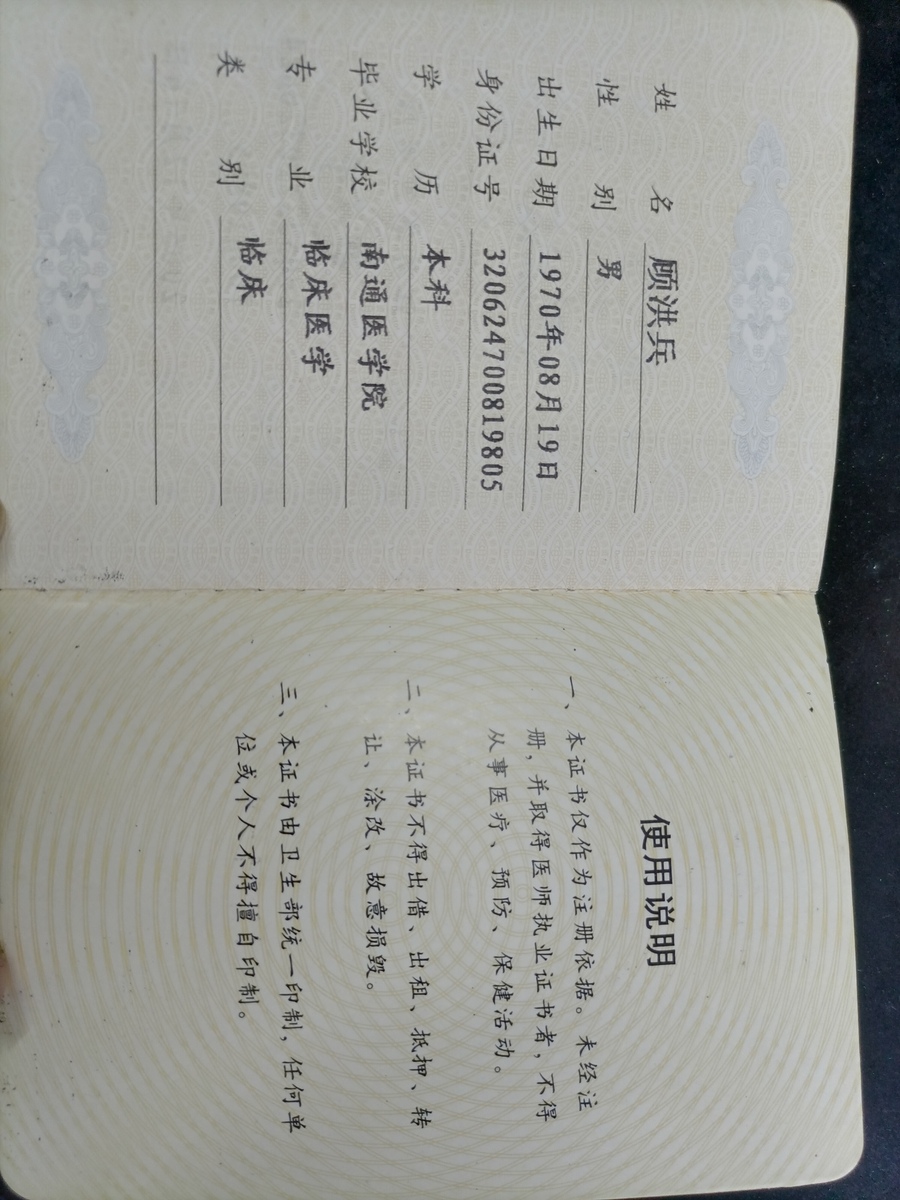 姓名 顾洪兵
性别 男
出生日期 1970年08月19日
身份证号 320624700819805
学历 本科
毕业学校 南通医学院
专业 临床医学
类别 临床
使用说明
一、本证书仅作为注册依据。未经注
册，并取得医师执业证书者，不得
从事医疗、预防、保健活动。
二、本证书不得出借、出租、抵押、转
让、涂改、故意损毁。
三、本证书由卫生部统一印制，任何单
位或个人不得擅自印制。